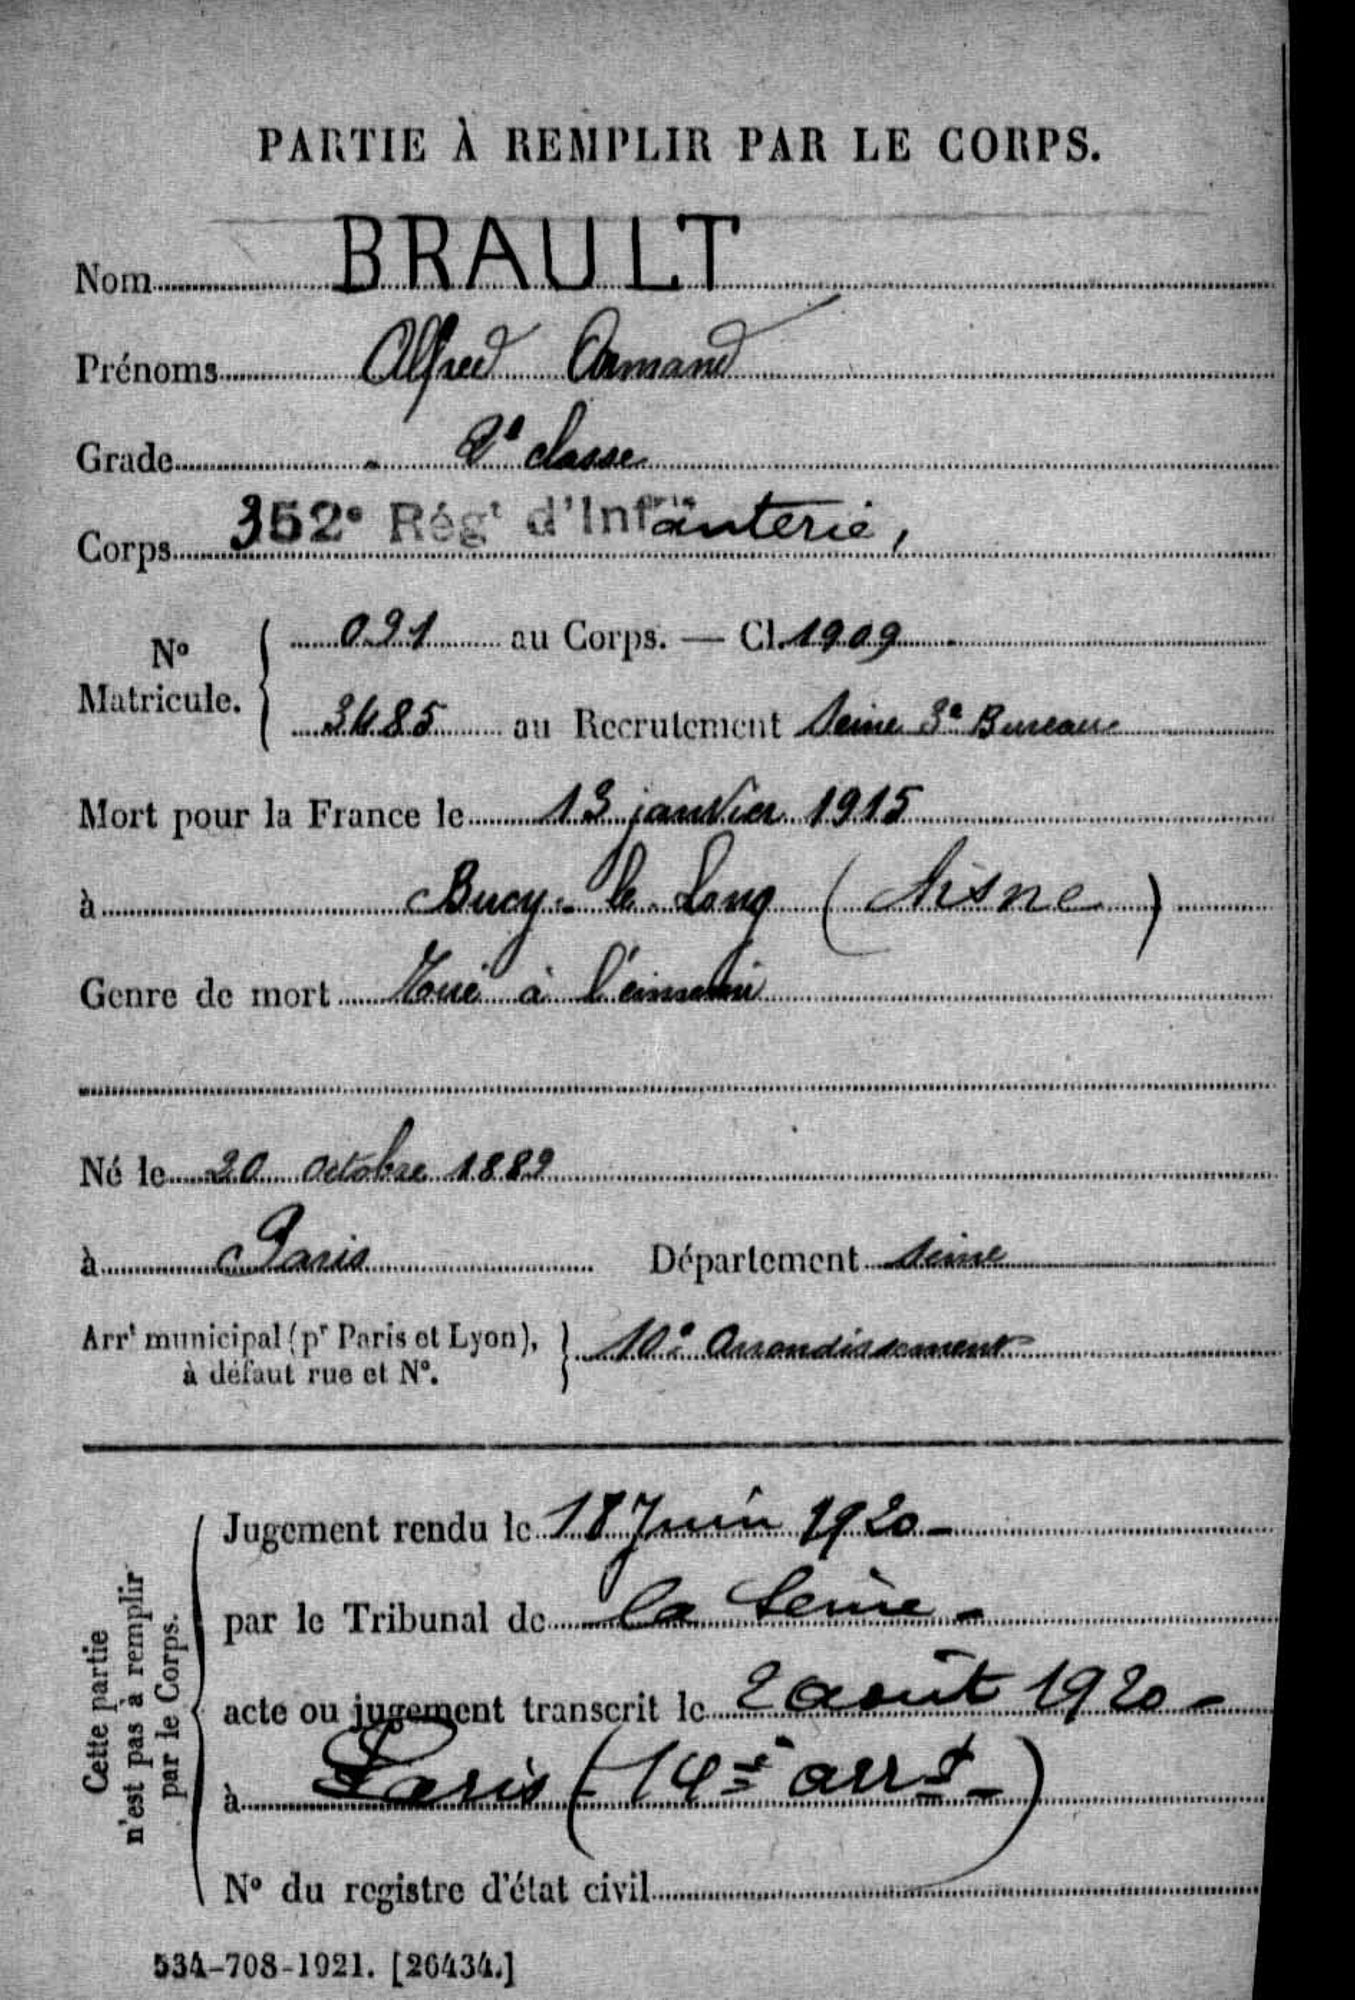 PARTIE À REMPLIR PAR LE CORPS.
Nom BRAULT
Prénoms Alfred Armand
Grade 2e classe
Corps 352e Régt d'Infanterie,
No Matricule. 091 au Corps. — Cl. 1909
3485 au Recrutement Seine 3e Bureau
Mort pour la France le 13 janvier 1915
à Bucy-le-Long (Aisne)
Genre de mort Tué à l'ennemi
Né le 20 octobre 1889
à Paris Département Seine
Arrt municipal (pr Paris et Lyon), à défaut rue et No. 10e Arrondissement
Cette partie n'est pas à remplir par le Corps.
Jugement rendu le 18 Juin 1920 -
par le Tribunal de la Seine -
acte ou jugement transcrit le 2 août 1920 -
à Paris (14e arrt -)
No du registre d'état civil
534-708-1921. [26434.]